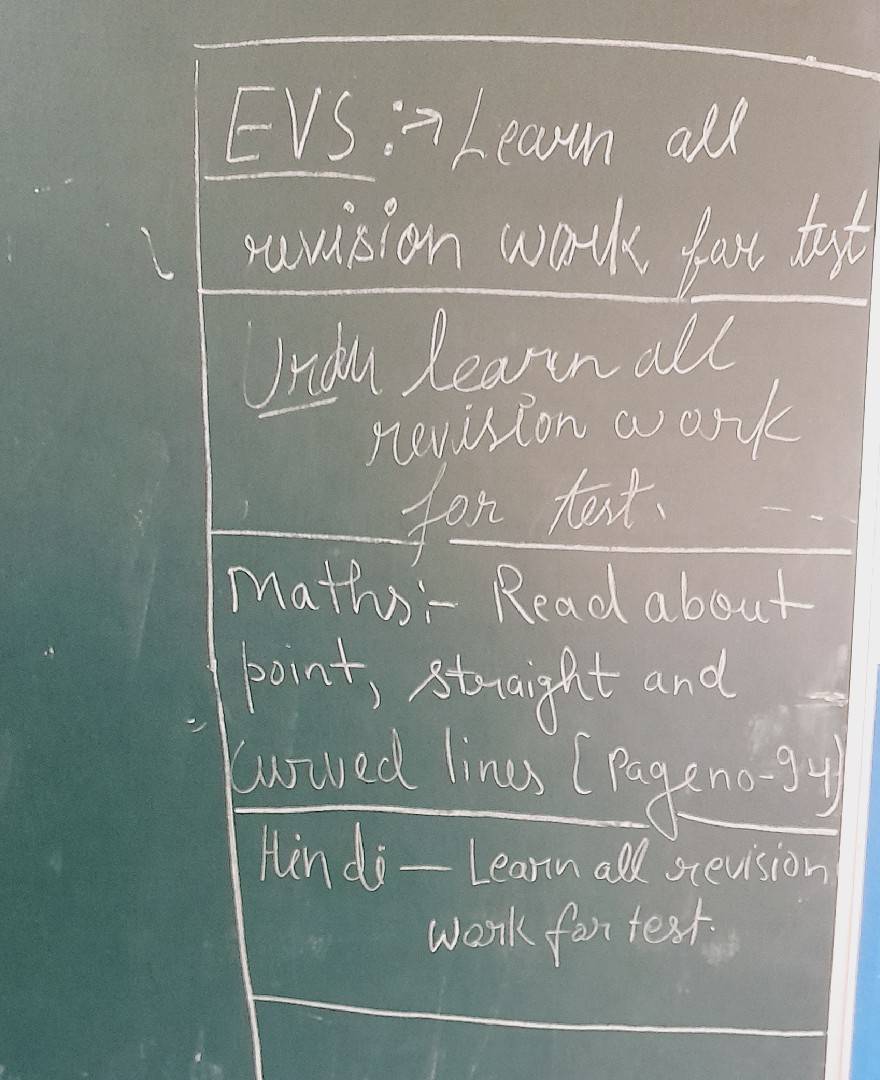 EVS :→ Learn all
revision work for test
Urdu learn all
revision work
for test.
Maths:- Read about
point, straight and
Curved lines [Page no-94]
Hindi — Learn all revision
work for test.